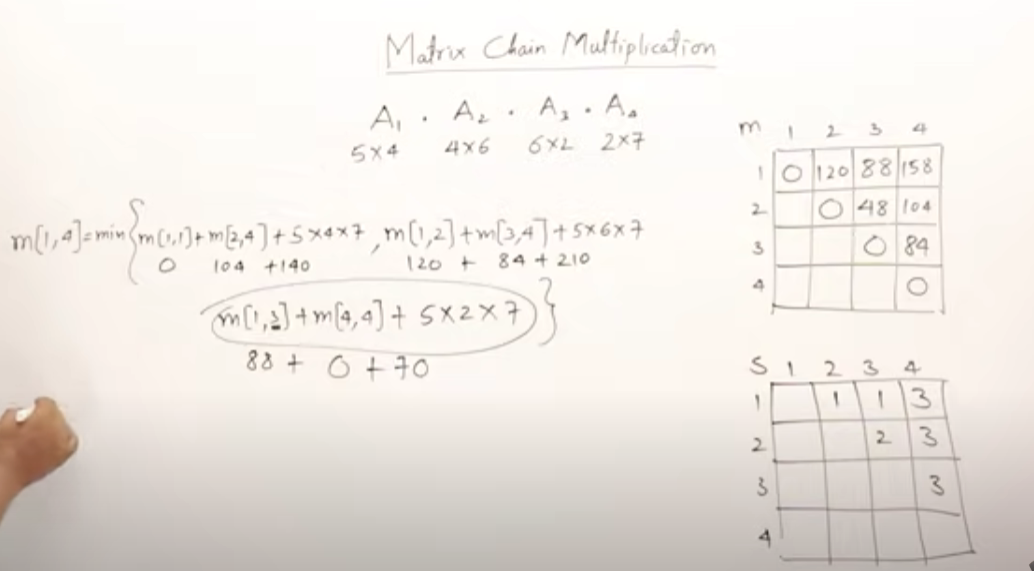 Matrix Chain Multiplication
A₁ . A₂ . A₃ . A₄
5×4 4×6 6×2 2×7
m[1,4]=min{m[1,1]+m[2,4]+5×4×7, m[1,2]+m[3,4]+5×6×7
0 104 +140 120 + 84 + 210
m[1,3]+m[4,4]+ 5×2×7}
88 + 0 + 70
m 1 2 3 4
1 0 120 88 158
2 0 48 104
3 0 84
4 0
S 1 2 3 4
1 1 1 3
2 2 3
3 3
4